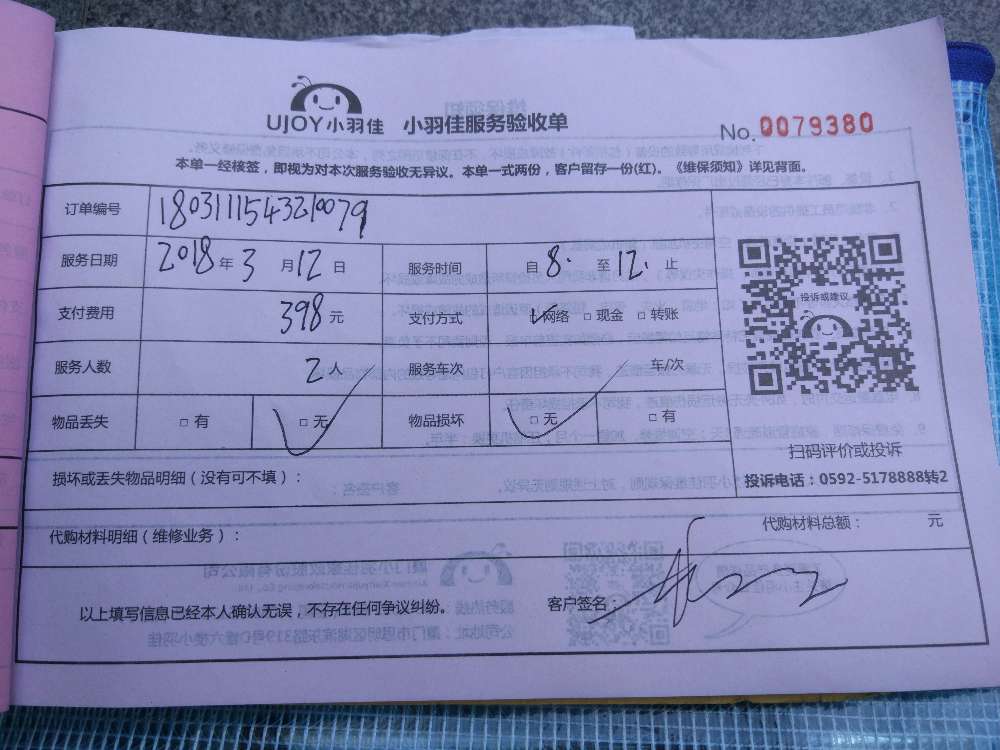 UJOY小羽佳 小羽佳服务验收单
No. 0079380
本单一经核签，即视为对本次服务验收无异议。本单一式两份，客户留存一份(红)。《维保须知》详见背面。
订单编号 1803111543210079
服务日期 2018年3月12日 服务时间 自8.至12.止
支付费用 398元 支付方式 □网络 □现金 □转账
投诉或建议
服务人数 2人 服务车次 车/次
物品丢失 □有 □无 物品损坏 □无 □有
扫码评价或投诉
投诉电话：0592-5178888转2
损坏或丢失物品明细（没有可不填）：
代购材料明细（维修业务）： 代购材料总额： 元
以上填写信息已经本人确认无误，不存在任何争议纠纷。 客户签名：